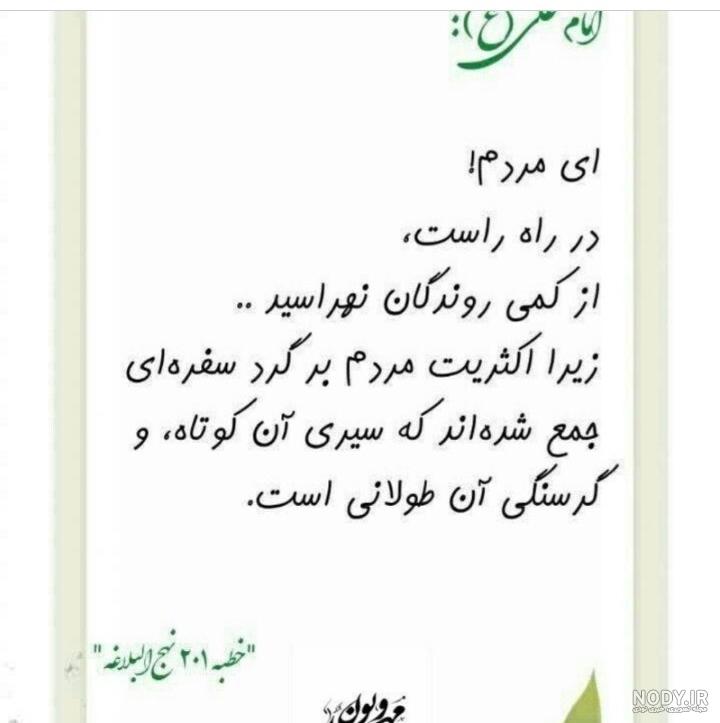 امام علی (ع):
ای مردم!
در راه راست،
از کمی روندگان نهراسید ..
زیرا اکثریت مردم بر گرد سفره‌ای
جمع شده‌اند که سیری آن کوتاه، و
گرسنگی آن طولانی است.
"خطبه ۲۰۱ نهج البلاغه"
NODY.IR